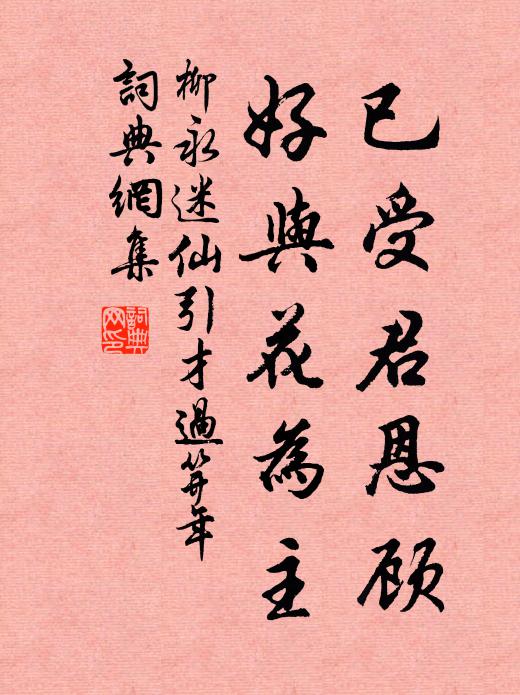 已受君恩顾
好與花為主
柳永迷仙引才過笄年
詞典網集
詞典網印